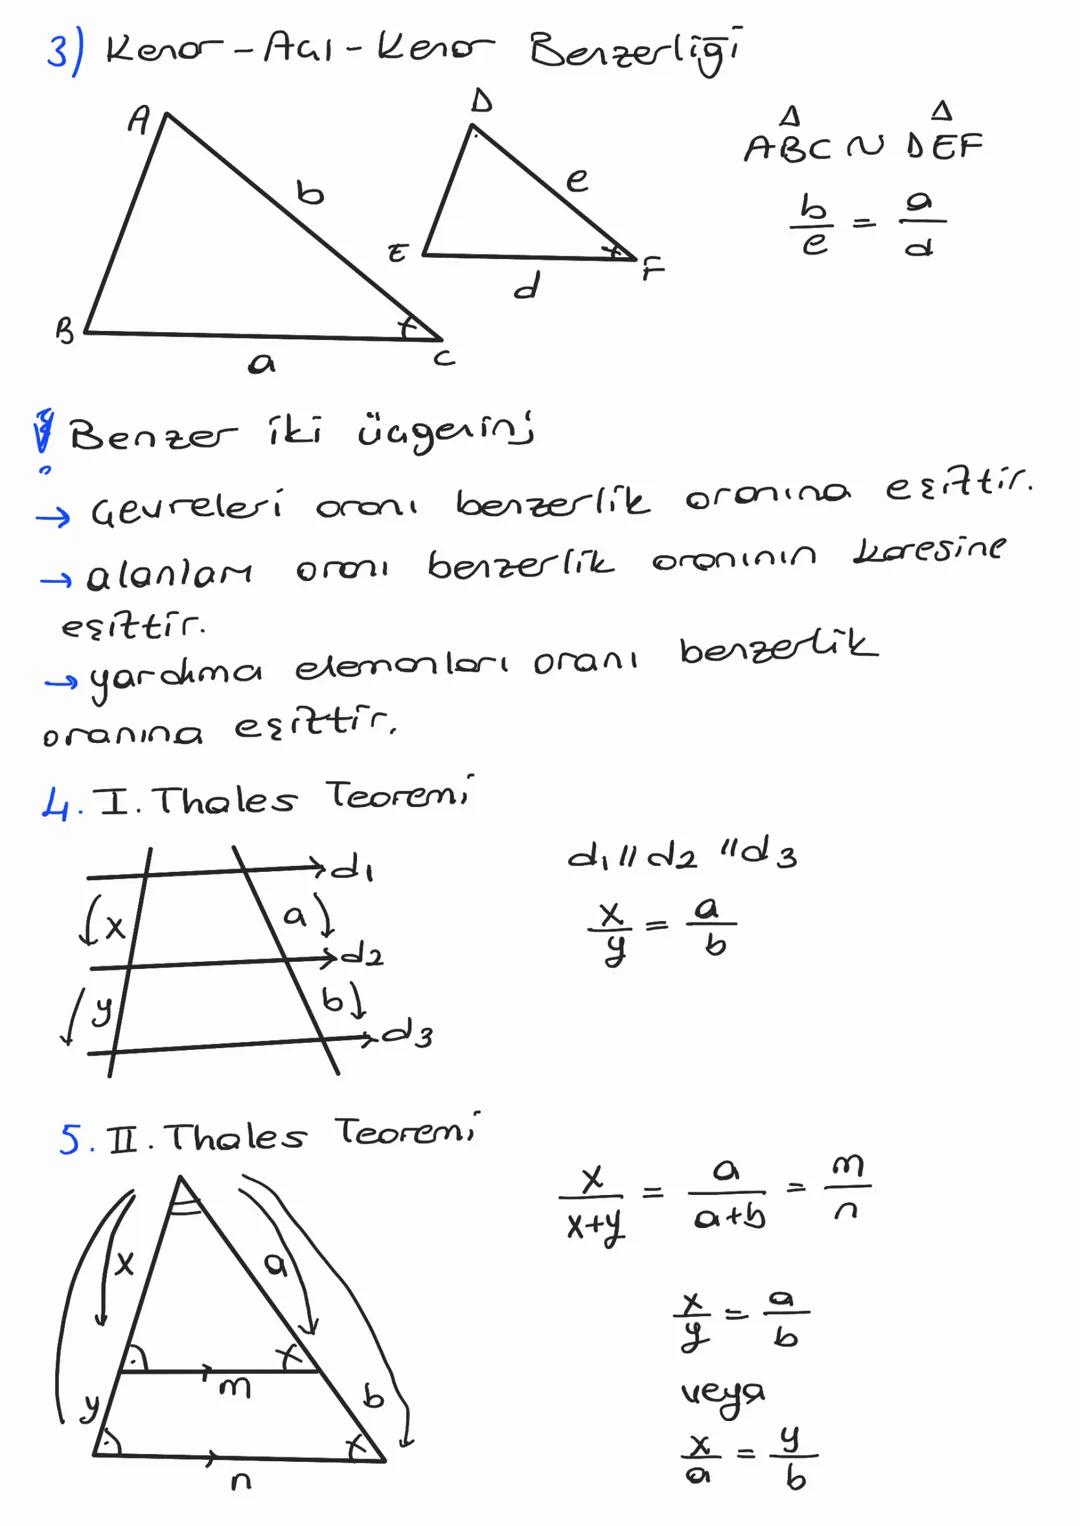 3) Kenar - Açı - Kenar Benzerliği
A
D
b
e
E
F
d
B
a
C
Δ Δ
ABC ~ DEF
b/e = a/d
! Benzer iki üçgenin;
→ Çevreleri oranı benzerlik oranına eşittir.
→ alanları oranı benzerlik oranının karesine
eşittir.
→ yardımcı elemanları oranı benzerlik
oranına eşittir.
4. I. Thales Teoremi
d1
x
a
d2
y
b
d3
d1 // d2 // d3
x/y = a/b
5. II. Thales Teoremi
x
a
m
y
b
n
x/x+y = a/a+b = m/n
x/y = a/b
veya
x/a = y/b